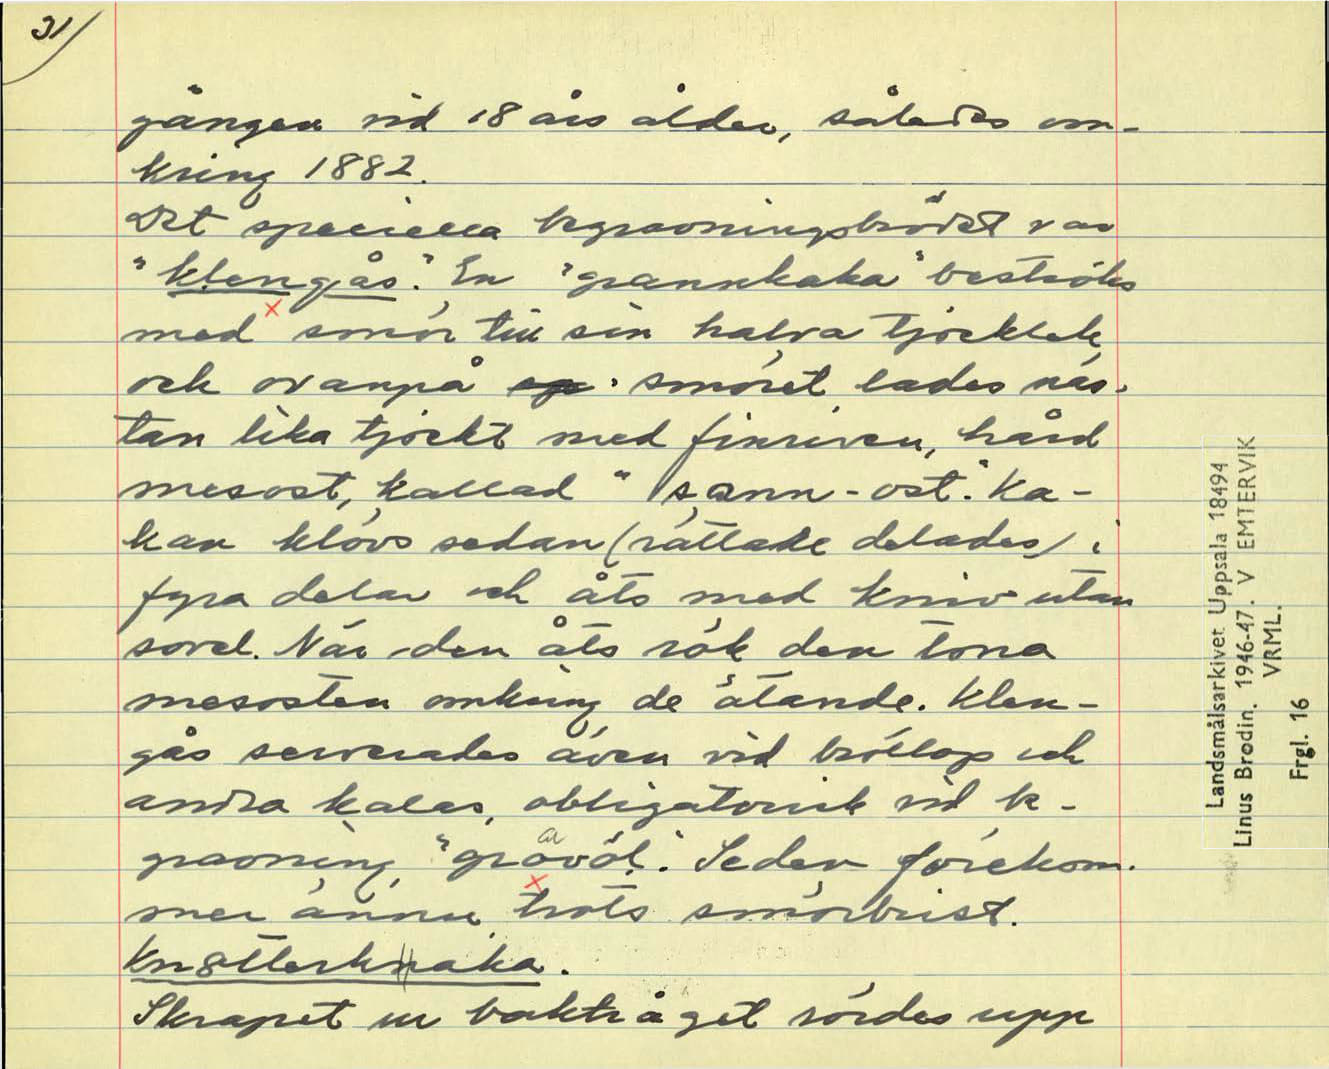 31
gången vid 18 års ålder, således om-
kring 1882.
Det speciella begravningsbrödet var
"klengås". En "grannkaka" beströks
med smör till sin halva tjocklek
och ovanpå smöret lades näs-
tan lika tjockt med finriven, hård
mesost, kallad "sann-ost". Ka-
kan klövs sedan (rättare delades) i
fyra delar och åts med kniv utan
sovel. När den åts rök den torra
mesosten omkring de ätande. Klen-
gås serverades även vid bröllop och
andra kalas, obligatorisk vid be-
gravning, "gravöl". Seden förekom-
mer ännu trots smörbrist.
Knåtterkaka.
Skrapet ur baktråget rördes upp
Landsmålsarkivet Uppsala 18494
Linus Brodin. 1946-47. V EMTERVIK
VRML.
Frgl. 16